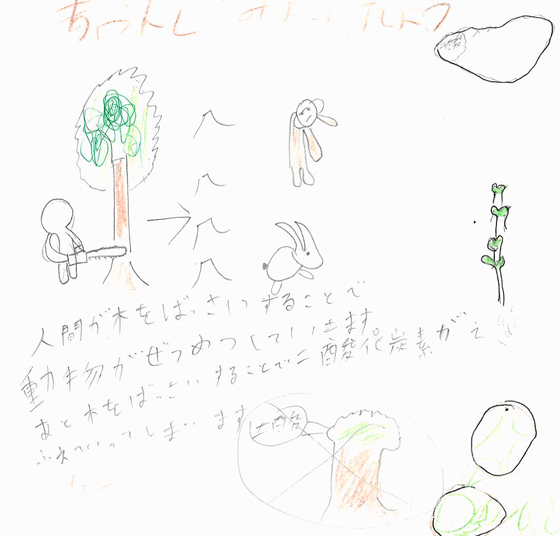 人間が木をばっさいすることで
動物がぜつめつしていきます。
あと木をばっさいすることで二酸化炭素がえ
ふれていってしまいます